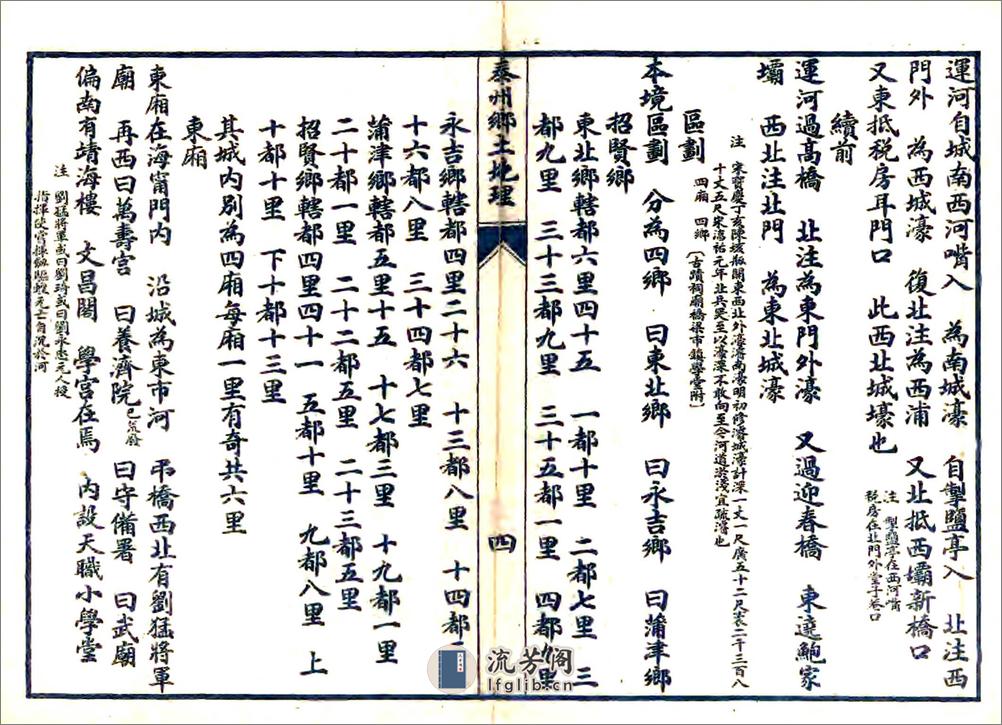 運河自城南西河嘴入　為南城濠　自掣鹽亭入　北注西
門外　為西城濠　復北注為西浦　又北抵西壩新橋口
又東抵税房耳門口　此西北城壕也
注　掣鹽亭在西河嘴
税房在北門外堂子巷口
續前
運河過高橋　北注為東門外濠　又過迎春橋　東遶鮑家
壩　西北注北門　為東北城濠
注　宋寶慶丁亥陳垓版開東西北外濠濬南濠明初修濬城濠計深一丈一尺廣五十二尺袤二千三百八
十丈五尺宋淳祐元年北兵突至以濠深不敢向至今河道淤淺宜疏濬也
區劃
四廂　四鄉　〔古蹟祠廟橋梁市鎮學堂附〕
本境區劃　分為四鄉　曰東北鄉　曰永吉鄉　曰蒲津鄉
招賢鄉
東北鄉轄都六里四十五　一都十里　二都七里　三
都九里　三十三郡九里　三十五都一里　四都九里
泰州鄉土地理
四
永吉鄉轄都四里二十六　十三都八里　十四都三
十六都八里　三十四都七里
蒲津鄉轄都五里十五　十七都三里　十九都一里
二十都一里　二十二都五里　二十三都五里
招賢鄉轄都四里四十一　五都十里　九都八里　上
十都十里　下十都十三里
其城内別為四廂每廂一里有奇共六里
東廂
東廂在海甯門内　沿城為東市河　弔橋西北有劉猛將軍
廟　再西曰萬壽宮　曰養濟院已荒廢　曰守備署　曰武廟
偏南有靖海樓　文昌閣　學宮在焉　内設天職小學堂
注　劉猛將軍或曰劉琦或曰劉永忠元人授
指揮使官揮劍驅蝗元亡自沉於河
流芳阁
lfglib.cn